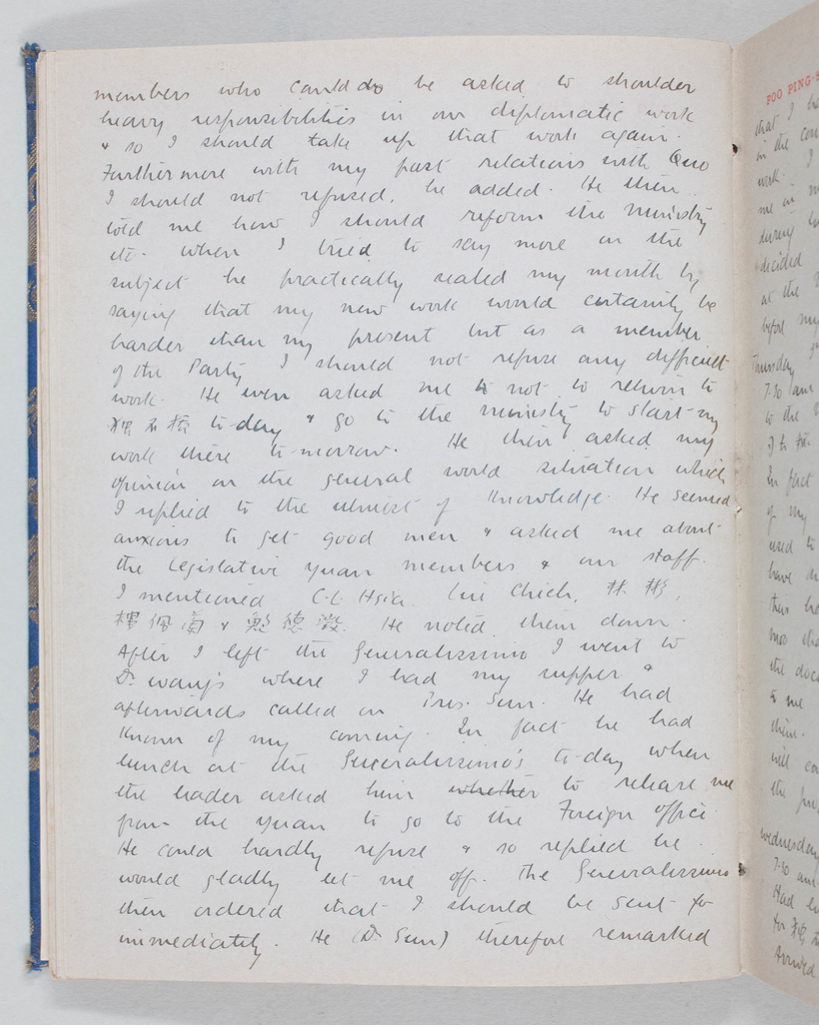 members who could do be asked to shoulder
heavy responsibilities in our diplomatic work
& so I should take up that work again.
Furthermore with my past relations with Quo
I should not refused, he added. He then
told me how I should reform the ministry
etc. When I tried to say more on the
subject he practically sealed my mouth by
saying that my new work would certainly be
harder than my present but as a member
of the Party I should not refuse any difficult
work. He even asked me not to return to
to-day & go to the ministry to start my
work there to-morrow. He then asked my
opinion on the general world situation which
I replied to the utmost of knowledge. He seemed
anxious to get good men & asked me about
the Legislative Yuan members & our staff.
I mentioned C.L. Hsia, Liu Chieh,
& 鮑德澂. He noted them down.
After I left the Generalissimo I went to
Dr. Wang's where I had my supper &
afterwards called on Pres. Sun. He had
known of my coming. In fact he had
lunch at the Generalissimo's to-day when
the leader asked him whether to release me
from the Yuan to go to the Foreign Office
He could hardly refuse & so replied he
would gladly let me off. The Generalissimo
then ordered that I should be sent for
immediately. He (Dr. Sun) therefore remarked
FOO PING-S
that I
in the
work. I
me in
during
decided
at the
before my
Thursday
7.30 am
to the
In fact
of my
used to
have
the
to me
them.
will
the
Wednesday
7.30 am
Had
for
Arrived